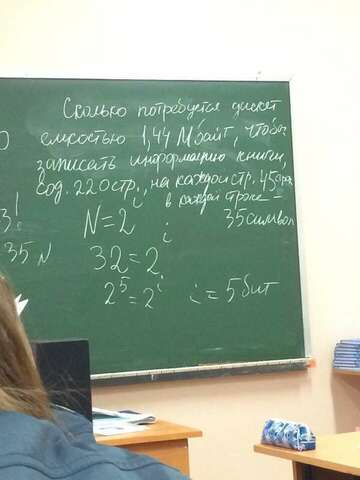 Сколько потребуется дискет
емкостью 1,44 Мбайт, чтобы
записать информацию книги,
сод. 220 стр., на каждой стр. 45 строк
в каждой строке -
35 символ
3!
35 N
N=2^i
32=2^i
2^5=2^i i=5 бит